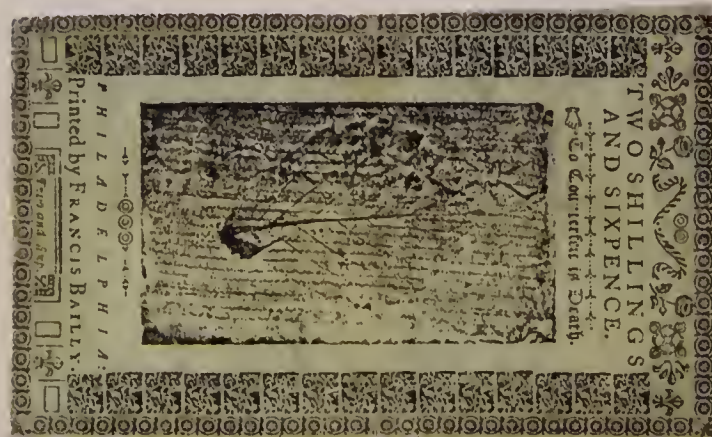 TWO SHILLINGS
AND SIXPENCE.
To Counterfeit is Death.
PHILADELPHIA:
Printed by FRANCIS BAILLY.